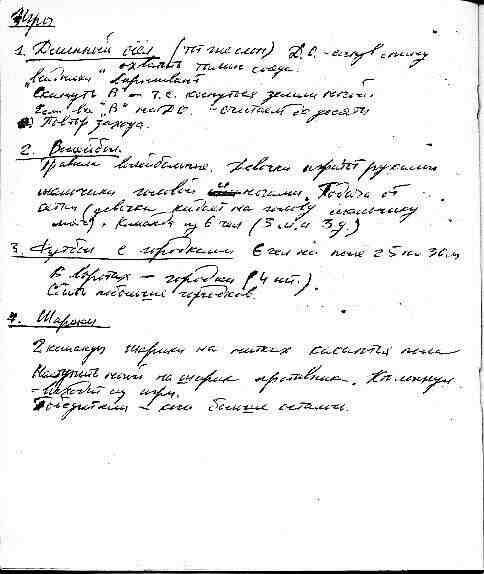 Игры
1. Длинный осёл (тот же слон) Д.О. – согнув спину
охватить талию соседа.
"Всадники" впрыгивают
Скинуть "В" – т.е. коснуться земли ногой.
Если все "В" на ДО. – считаем до десяти
Повтор захода.
2. Волейбол.
Правила волейбольные. Девочки играют руками
мальчики головой и ногами. Подача от
сетки (девочка кидает на голову мальчику
). Команда из 6 чел (3 м. и 3 д.)
3. Футбол с городками 6 чел на поле 25 на 36 м
В воротах – городки (4 шт.).
Сбить побольше городков.
4. Шарики
2 команды шарики на нитках касаются пола
Наступить ногой на шарик противника. Хлопнули
– выходит из игры.
Победители – кого больше осталось.